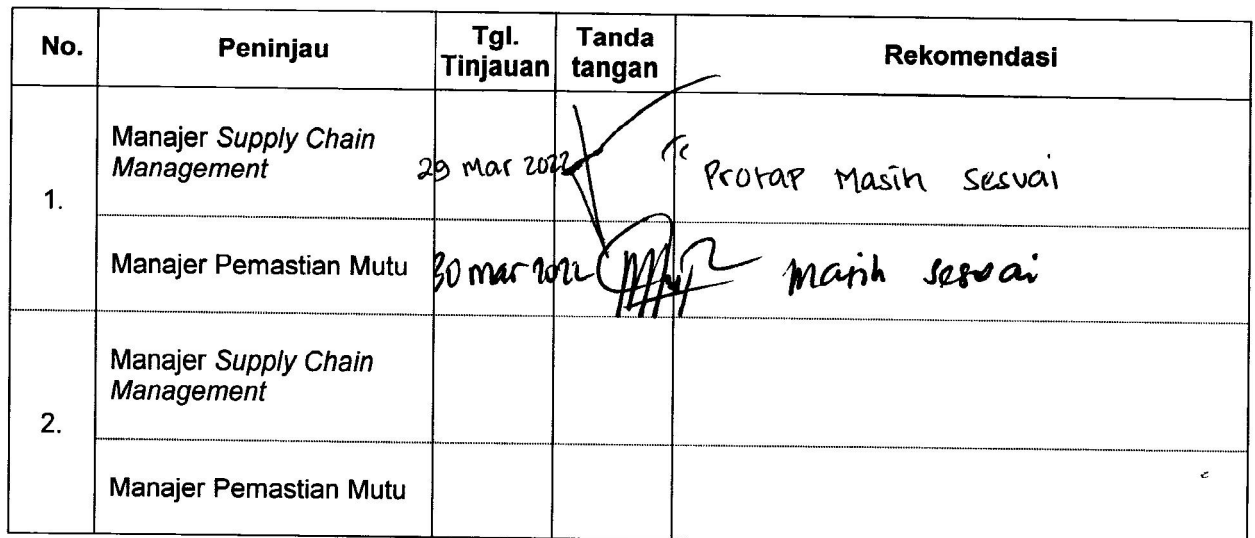 No. Peninjau Tgl. Tinjauan Tanda tangan Rekomendasi
1.
Manajer Supply Chain
Management
29 Mar 2022
Protap Masih sesuai
Manajer Pemastian Mutu 30 mar 2022 masih sesuai
2.
Manajer Supply Chain
Management
Manajer Pemastian Mutu